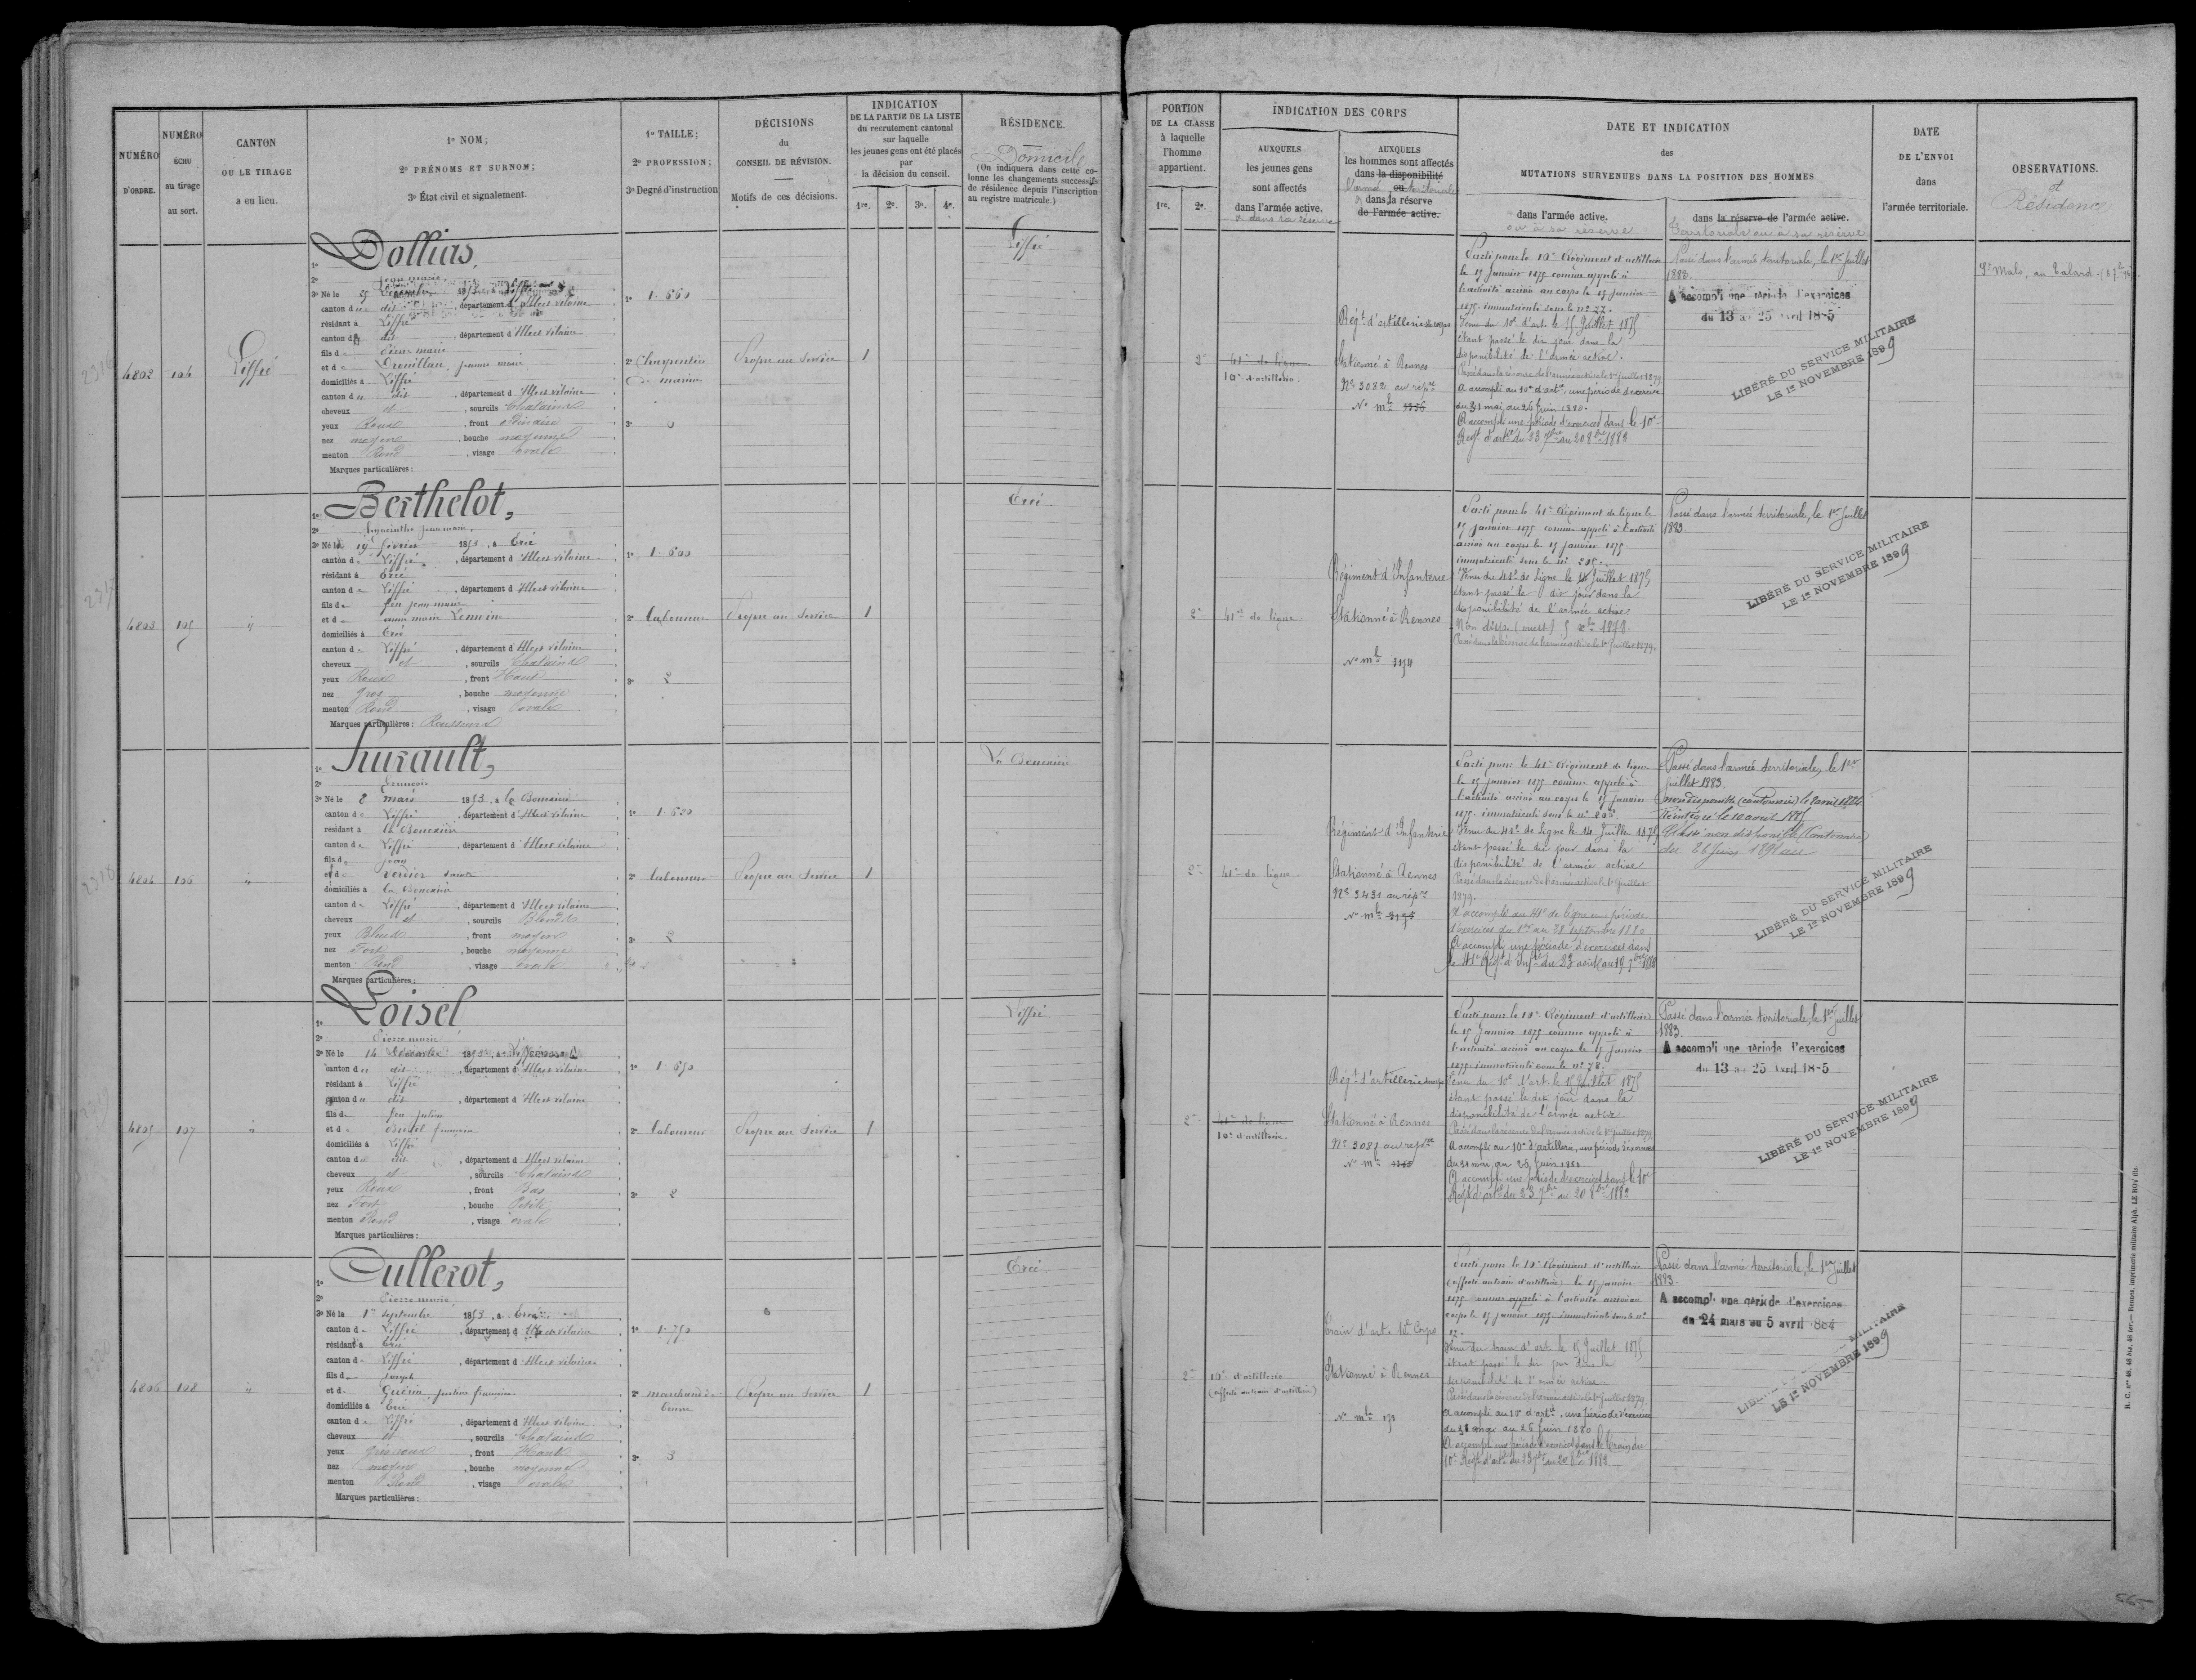 NUMÉRO D'ORDRE.
NUMÉRO ÉCHU au tirage au sort.
CANTON OU LE TIRAGE a eu lieu.
1º NOM;
2º PRÉNOMS ET SURNOM;
3º État civil et signalement.
1º TAILLE;
2º PROFESSION;
3º Degré d'instruction
DÉCISIONS du CONSEIL DE RÉVISION.
Motifs de ces décisions.
INDICATION DE LA PARTIE DE LA LISTE
du recrutement cantonal
sur laquelle
les jeunes gens ont été placés
par
la décision du conseil.
1re. 2e. 3e. 4e.
RÉSIDENCE.
Domicile
(On indiquera dans cette co-
lonne les changements successifs
de résidence depuis l'inscription
au registre matricule.)
PORTION DE LA CLASSE
à laquelle
l'homme
appartient.
1re. 2e.
INDICATION DES CORPS
AUXQUELS
les jeunes gens
sont affectés
dans l'armée active.
& dans sa réserve
AUXQUELS
les hommes sont affectés
dans la disponibilité
l'armée ou territoriale
& dans la réserve
de l'armée active.
DATE ET INDICATION
des
MUTATIONS SURVENUES DANS LA POSITION DES HOMMES
dans l'armée active.
ou à sa réserve
dans la réserve de l'armée active.
territoriale ou à sa réserve
DATE
DE L'ENVOI
dans
l'armée territoriale.
OBSERVATIONS.
et
Résidence
4802 104 Liffré
1º Dollias,
2º Jean marie
3º Né le 25 Décembre 1853, à Liffré
canton du dit, département d'Illeet vilaine
résidant à Liffré
canton du dit, département d'Illeet vilaine
fils de Pierre marie
et de Drouillau, jeanne marie
domiciliés à Liffré
canton du dit, département d'Illeet vilaine
cheveux et, sourcils Chatains
yeux Roux, front ordinaire
nez moyen, bouche moyenne
menton Rond, visage ovale
Marques particulières:
1º 1.660
2º Charpentier de marine
3º 0
Propre au Service
1
Liffré
2e
41e de ligne
10e d'artillerie.
Régt d'artillerie
Stationné à Rennes
No 3082 au répre
No mle 1356
Parti pour le 10e Régiment d'artillerie
le 15 Janvier 1875 comme appelé à
l'activité arrivé au corps le 15 Janvier
1875 immatriculé sous le no 27.
Venu du 10e d'art. le 15 Juillet 1875
étant passé le dit jour dans la
disponibilité de l'armée active.
Passé dans la réserve de l'armée active le 1er juillet 1879
A accompli au 10e d'artie, une période d'exercices
du 31 mai au 26 juin 1880.
A accompli une période d'exercices dans le 10e
Régt d'artie du 23 7bre au 20 8bre 1882
Passé dans l'armée territoriale, le 1er Juillet
1883.
A accompli une période d'exercices
du 13 au 25 Avril 1885
LIBÉRÉ DU SERVICE MILITAIRE
LE 1er NOVEMBRE 1899
St Malo, au Talard
4803 105 "
1º Berthelot,
2º hyacinthe jean marie.
3º Né le 19 février 1853, à Ercé
canton de Liffré, département d'Illeet vilaine
résidant à Ercé
canton de Liffré, département d'Illeet vilaine
fils de feu jean marie
et de anne marie Lemoine
domiciliés à Ercé
canton de Liffré, département d'Illeet vilaine
cheveux et, sourcils Chatains
yeux Roux, front Haut
nez gros, bouche moyenne
menton Rond, visage ovale
Marques particulières: Rousseurs
1º 1.600
2º laboureur
3º 2
Propre au Service
1
Ercé.
2e
41e de ligne
Régiment d'Infanterie
Stationné à Rennes
No mle 3154
Parti pour le 41e Régiment de ligne le
15 janvier 1875 comme appelé à l'activité
arrivé au corps le 15 janvier 1875.
immatriculé sous le no 205.
Venu du 41e de Ligne le 14 Juillet 1875
étant passé le dit jour dans la
disponibilité de l'armée active
Non disp. (ouest) 5 xbre 1878.
Passé dans la réserve de l'armée active le 1er Juillet 1879.
Passé dans l'armée territoriale, le 1er Juillet
1883.
LIBÉRÉ DU SERVICE MILITAIRE
LE 1er NOVEMBRE 1899
4804 106 "
1º Hurault,
2º François
3º Né le 8 mars 1853, à la Bouexière
canton de Liffré, département d'Illeet vilaine
résidant à la Bouexière
canton de Liffré, département d'Illeet vilaine
fils de jean
et de Verdier
domiciliés à la Bouexière
canton de Liffré, département d'Illeet vilaine
cheveux et, sourcils Blonds
yeux Bleus, front moyen
nez Fort, bouche moyenne
menton Rond, visage ovale
Marques particulières:
1º 1.630
2º laboureur
3º 2
Propre au Service
1
La Bouexière
2e
41e de ligne.
Régiment d'Infanterie
Stationné à Rennes
No 3431 au répre
No mle
Parti pour le 41e Régiment de ligne
le 15 janvier 1875 comme appelé à
l'activité arrivé au corps le 15 janvier
1875 immatriculé sous le no 202.
Venu du 41e de Ligne le 14 Juillet 1875
étant passé le dit jour dans la
disponibilité de l'armée active
Passé dans la réserve de l'armée active le 1er Juillet
1879.
A accompli au 41e de ligne une période
d'exercices du 1er au 28 septembre 1880
A accompli une période d'exercices dans
le 41e Régt d'Infie du 23 août au 19 7bre 1882
Passé dans l'armée territoriale, le 1er
juillet 1883.
non disponible (cantonnier) le 2 avril 1884.
Réintégré le 10 avril 1885
Classé non disponible (Cantonnier)
LIBÉRÉ DU SERVICE MILITAIRE
LE 1er NOVEMBRE 1899
4805 107 "
1º Loisel
2º Pierre marie
3º Né le 14 Décembre 1853, à Liffré
canton du dit, département d'Illeet vilaine
résidant à Liffré
canton du dit, département d'Illeet vilaine
fils de feu julien
et de Brisel françoise
domiciliés à Liffré
canton du dit, département d'Illeet vilaine
cheveux et, sourcils Chatains
yeux Roux, front Bas
nez Fort, bouche Petite
menton Rond, visage ovale
Marques particulières:
1º 1.650
2º laboureur
3º 2
Propre au Service
1
Liffré
2e
41e de ligne
10e d'artillerie.
Régt d'artillerie
Stationné à Rennes
No 3083 au répre
No mle
Parti pour le 10e Régiment d'artillerie
le 15 Janvier 1875 comme appelé à
l'activité arrivé au corps le 15 Janvier
1875 immatriculé sous le no 28.
Venu du 10e d'art. le 15 Juillet 1875
étant passé le dit jour dans la
disponibilité de l'armée active.
Passé dans la réserve de l'armée active le 1er juillet 1879
A accompli au 10e d'artillerie, une période d'exercices
du 31 mai au 26 juin 1880
A accompli une période d'exercices dans le 10e
Régt d'artie du 23 7bre au 20 8bre 1882
Passé dans l'armée territoriale, le 1er Juillet
1883.
A accompli une période d'exercices
du 13 au 25 Avril 1885
LIBÉRÉ DU SERVICE MILITAIRE
LE 1er NOVEMBRE 1899
4806 108 "
1º Cullerot,
2º Pierre marie
3º Né le 1er septembre 1853, à Ercé
canton de Liffré, département d'Illeet vilaine
résidant à Ercé
canton de Liffré, département d'Illeet vilaine
fils de Joseph
et de Guérin, justine françoise
domiciliés à Ercé
canton de Liffré, département d'Illeet vilaine
cheveux et, sourcils Chatains
yeux gris roux, front Haut
nez moyen, bouche moyenne
menton Rond, visage ovale
Marques particulières:
1º 1.750
2º marchand de beurre
3º 3
Propre au Service
1
Ercé.
2e
10e d'artillerie
(affecté au train d'artillerie)
Train d'art. 10e Corps
Stationné à Rennes
No mle 171
Parti pour le 10e Régiment d'artillerie
(affecté au train d'artillerie) le 15 janvier
1875 comme appelé à l'activité arrivé au
corps le 15 janvier 1875. immatriculé sous le no
12.
Venu du train d'art. le 15 Juillet 1875
étant passé le dit jour dans la
disponibilité de l'armée active.
Passé dans la réserve de l'armée active le 1er juillet 1879
A accompli au 10e d'artie, une période d'exercices
du 31 mai au 26 juin 1880
A accompli une période d'exercices dans le Train du
10e Régt d'artie du 23 7bre au 20 8bre 1882
Passé dans l'armée territoriale, le 1er Juillet
1883.
A accompli une période d'exercices
du 24 mars au 5 avril 1884
MILITAIRE
LE 1er NOVEMBRE 1899
2316
2317
2318
2319
2320
R. C. nos 48, 48 bis, 48 ter. — Rennes, imprimerie militaire Alph. LE ROY fils.
565